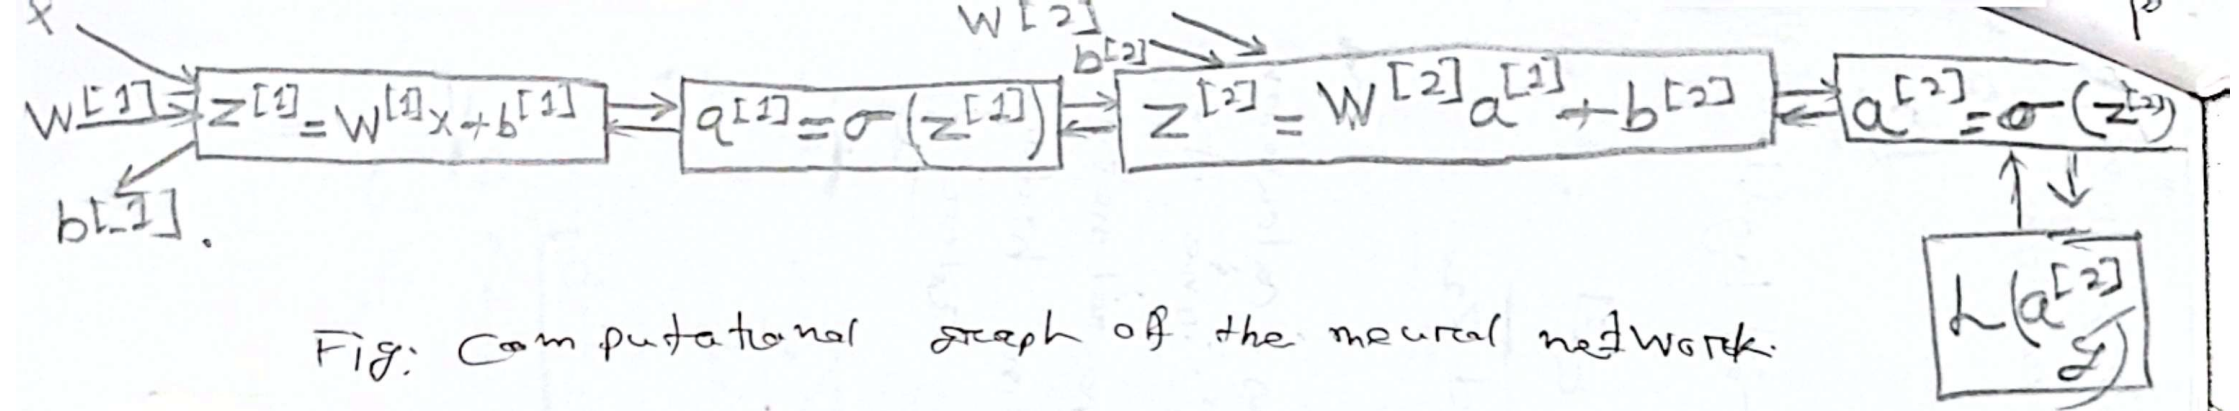 x
W[2]
b[2]
W[1]
z[1] = W[1]x + b[1]
a[1] = σ(z[1])
z[2] = W[2]a[1] + b[2]
a[2] = σ(z[2])
b[1].
L(a[2]
y)
Fig: Computational graph of the neural network.